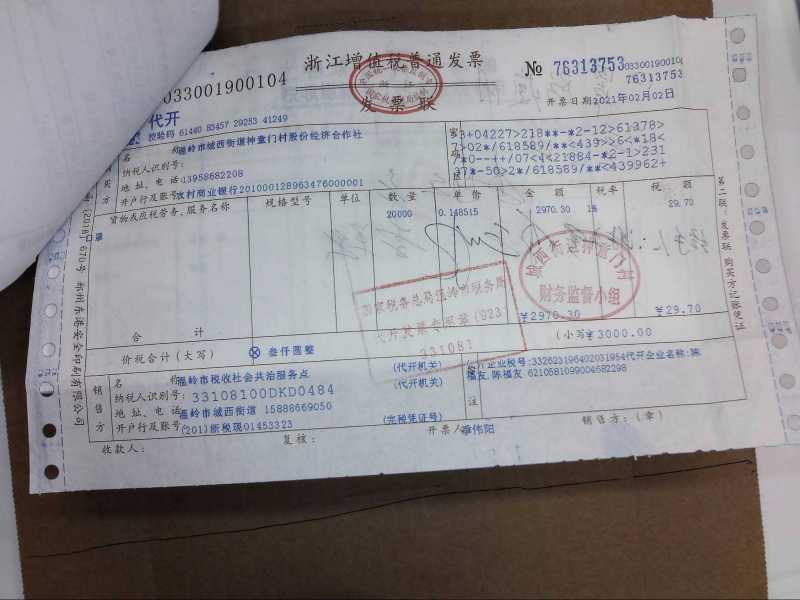 浙江增值税普通发票
033001900104
№ 76313753
033001900104
76313753
发票联
开票日期2021年02月02日
代开
校验码 61440 83457 29253 41249
名 称
温岭市城西街道神童门村股份经济合作社
纳税人识别号:
地址、电话:13958682208
开户行及账号:农村商业银行201000128963476000001
3+04227>218**-*2-12>61378>
7>02*/618589/**<439>>6<*18<
*0--++/07<4<21884-*2-1>231
37*-50>2*/618589/**<439962+
货物或应税劳务、服务名称
规格型号
单位
数量
单价
金额
税率
税额
20000
0.148515
2970.30
1%
29.70
城西街道神童门村
财务监督小组
国家税务总局温岭市税务局
代开发票专用章
331081
合计
¥2970.30
¥29.70
价税合计(大写)
⊗ 叁仟圆整
(小写)¥3000.00
销售方
名 称
温岭市税收社会共治服务点
(代开机关)
纳税人识别号:33108100DKD0484
(代开机关)
地址、电话
温岭市城西街道 15888669050
开户行及账号
(201)浙税现01453323
(完税凭证号)
企业税号:332623196402031954代开企业名称:陈
福友,陈福友 6210581099004682298
收款人:
复核:
开票人
销售方:(章)
第二联:发票联 购买方记账凭证